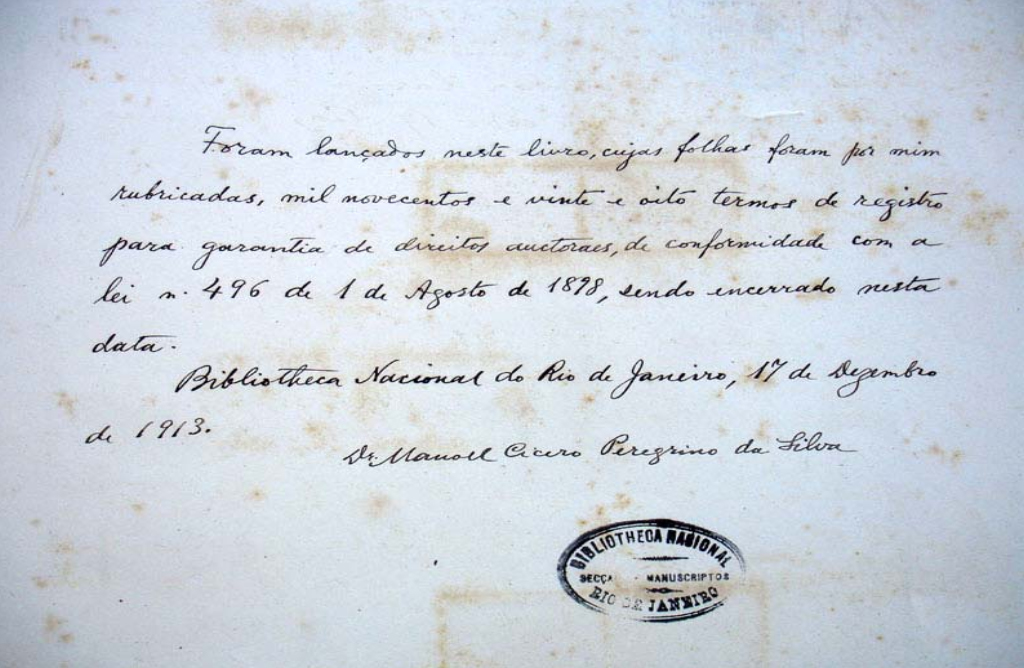 Foram lançados neste livro, cujas folhas foram por mim
rubricadas, mil novecentos e vinte e oito termos de registro
para garantia de direitos auctoraes, de conformidade com a
lei n. 496 de 1 de Agosto de 1898, sendo encerrado nesta
data.
Bibliotheca Nacional do Rio de Janeiro, 17 de Dezembro
de 1913.
Dr. Manoel Cicero Peregrino da Silva
BIBLIOTHECA NACIONAL
MANUSCRIPTOS
RIO DE JANEIRO